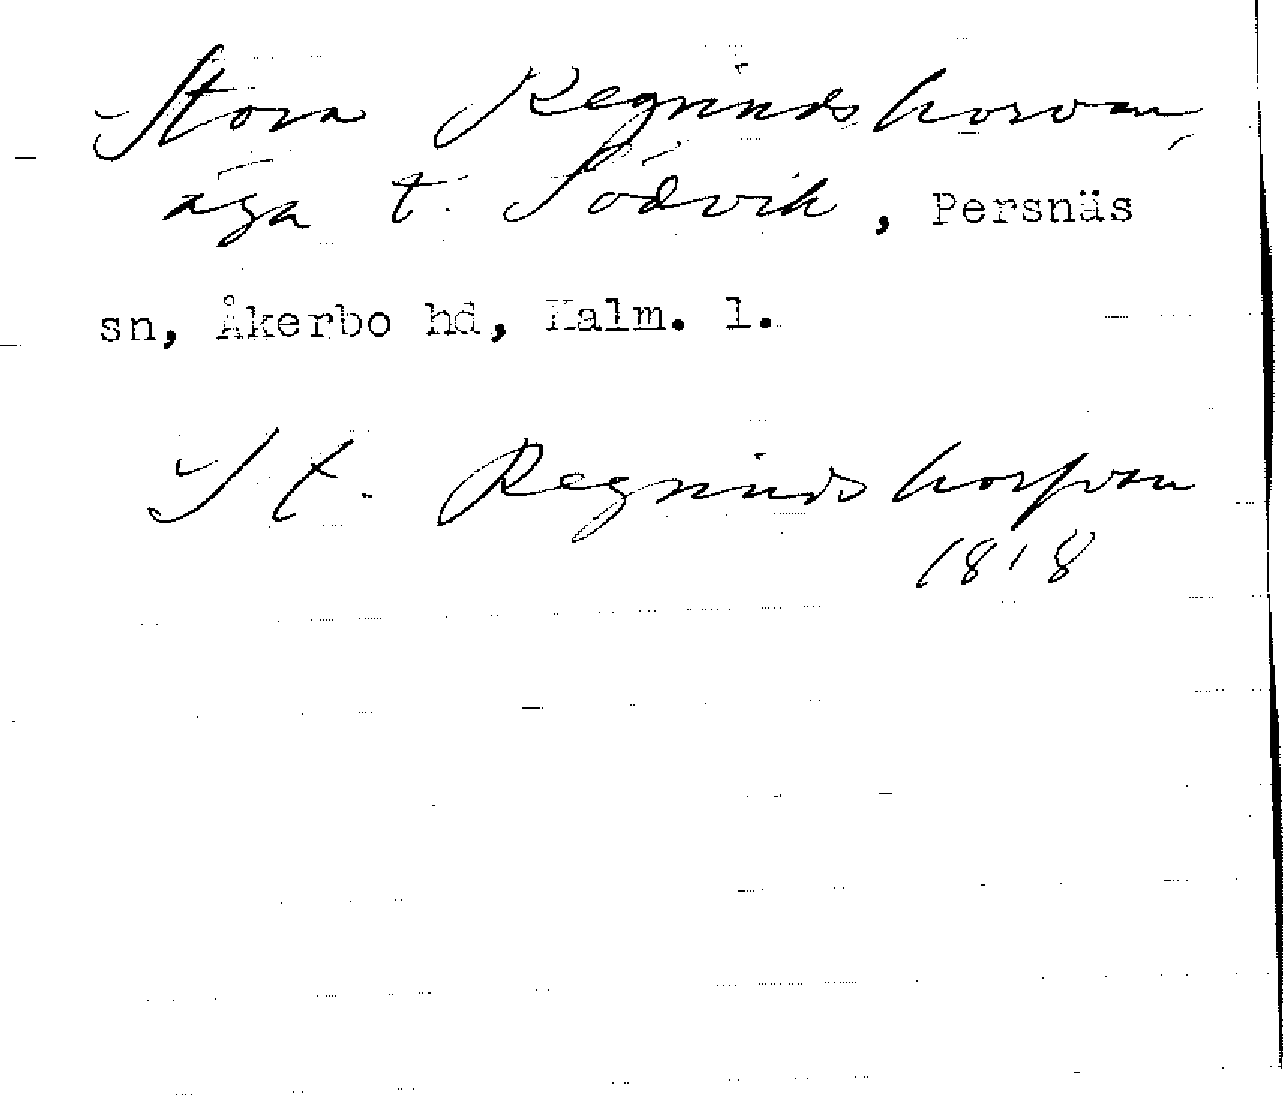 Stora Regnindshorvan,
äga t. Södvik, Persnäs
sn, Åkerbo hd, Kalm. l.
St. Regnindshorfvan
1818